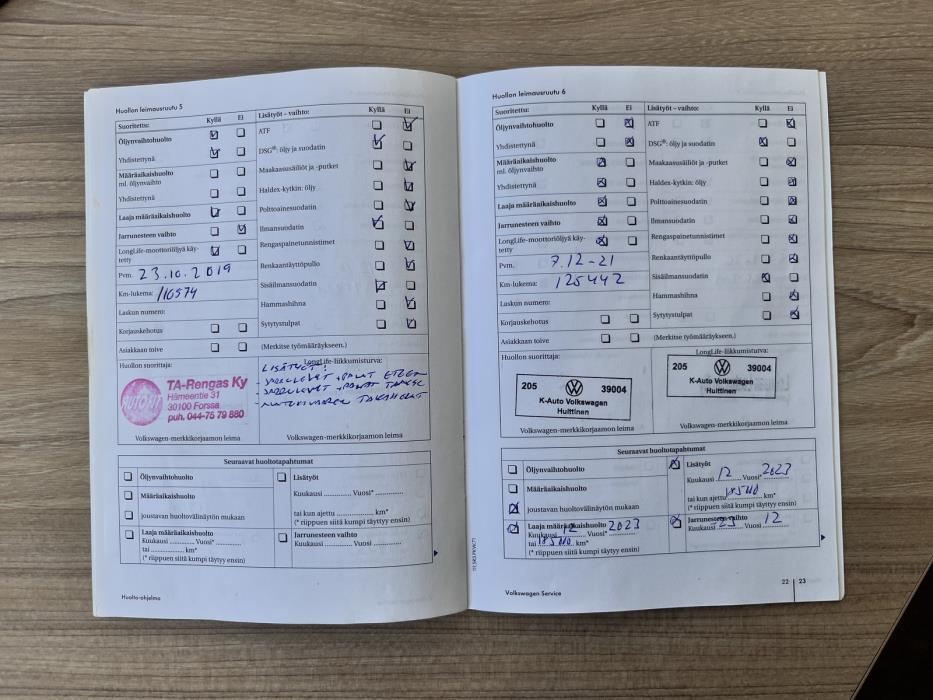 Huollon leimausruutu 5
Suoritettu: Kyllä Ei Lisätyöt – vaihto: Kyllä Ei
Öljynvaihtohuolto
ATF
Yhdistettynä
DSG®: öljy ja suodatin
Määräaikaishuolto
ml. öljynvaihto
Maakaasusäiliöt ja -putket
Yhdistettynä
Haldex-kytkin: öljy
Laaja määräaikaishuolto
Polttoainesuodatin
Jarrunesteen vaihto
Ilmansuodatin
LongLife-moottoriöljyä käy-
tetty
Rengaspainetunnistimet
Pvm. 23.10.2019
Renkaantäyttöpullo
Km-lukema: 110574
Sisäilmansuodatin
Laskun numero:
Hammashihna
Korjauskehotus
Sytytystulpat
Asiakkaan toive
(Merkitse työmääräykseen.)
Huollon suorittaja:
LongLife-liikkumisturva:
LISÄTYÖT!
AUTOFIT
TA-Rengas Ky
Hämeentie 31
30100 Forssa
puh. 044-75 79 880
Volkswagen-merkkikorjaamon leima
Volkswagen-merkkikorjaamon leima
Seuraavat huoltotapahtumat
Öljynvaihtohuolto
Lisätyöt
Kuukausi ............ Vuosi* ............
Määräaikaishuolto
joustavan huoltovälinäytön mukaan
tai kun ajettu ............ km*
(* riippuen siitä kumpi täytyy ensin)
Laaja määräaikaishuolto
Kuukausi ............ Vuosi* ............
tai ............ km*
(* riippuen siitä kumpi täytyy ensin)
Jarrunesteen vaihto
Kuukausi ............ Vuosi ............
Huolto-ohjelma
Huollon leimausruutu 6
Suoritettu: Kyllä Ei Lisätyöt – vaihto: Kyllä Ei
Öljynvaihtohuolto
ATF
Yhdistettynä
DSG®: öljy ja suodatin
Määräaikaishuolto
ml. öljynvaihto
Maakaasusäiliöt ja -putket
Yhdistettynä
Haldex-kytkin: öljy
Laaja määräaikaishuolto
Polttoainesuodatin
Jarrunesteen vaihto
Ilmansuodatin
LongLife-moottoriöljyä käy-
tetty
Rengaspainetunnistimet
Pvm. 7.12-21
Renkaantäyttöpullo
Km-lukema: 125442
Sisäilmansuodatin
Laskun numero:
Hammashihna
Korjauskehotus
Sytytystulpat
Asiakkaan toive
(Merkitse työmääräykseen.)
Huollon suorittaja:
LongLife-liikkumisturva:
205 39004
K-Auto Volkswagen
Huittinen
205 39004
K-Auto Volkswagen
Huittinen
Volkswagen-merkkikorjaamon leima
Volkswagen-merkkikorjaamon leima
Seuraavat huoltotapahtumat
Öljynvaihtohuolto
Lisätyöt
Kuukausi 12 Vuosi* 2023
Määräaikaishuolto
joustavan huoltovälinäytön mukaan
tai kun ajettu ............ km*
(* riippuen siitä kumpi täytyy ensin)
Laaja määräaikaishuolto
Kuukausi 12 Vuosi* 2023
tai ............ km*
(* riippuen siitä kumpi täytyy ensin)
Jarrunesteen vaihto
Kuukausi 23 Vuosi 12
Volkswagen Service
22 | 23